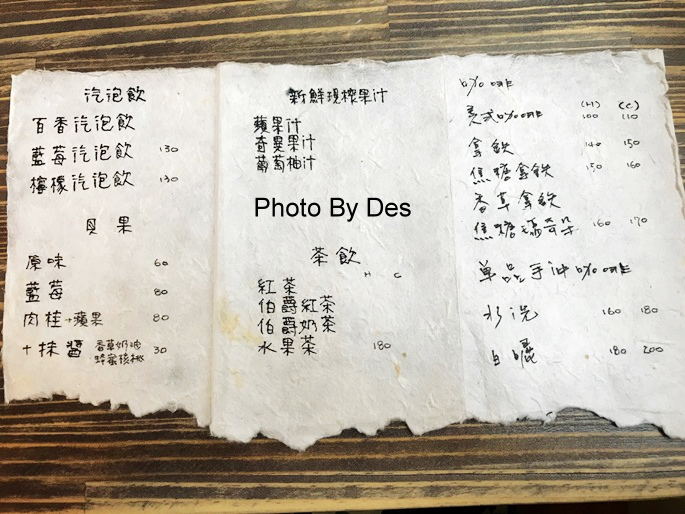 汽泡飲
百香汽泡飲
藍莓汽泡飲 130
檸檬汽泡飲 130
貝果
原味 60
藍莓 80
肉桂+蘋果 80
+抹醬 香草奶油 蜂蜜核桃 30
新鮮現榨果汁
蘋果汁
奇異果汁
葡萄柚汁
Photo By Des
茶飲
H C
紅茶
伯爵紅茶
伯爵奶茶
水果茶 180
咖啡
(H) (C)
美式咖啡 100 110
拿鐵 140 150
焦糖拿鐵 150 160
香草拿鐵
焦糖瑪奇朵 160 170
單品手沖咖啡
水洗 160 180
日曬 180 200